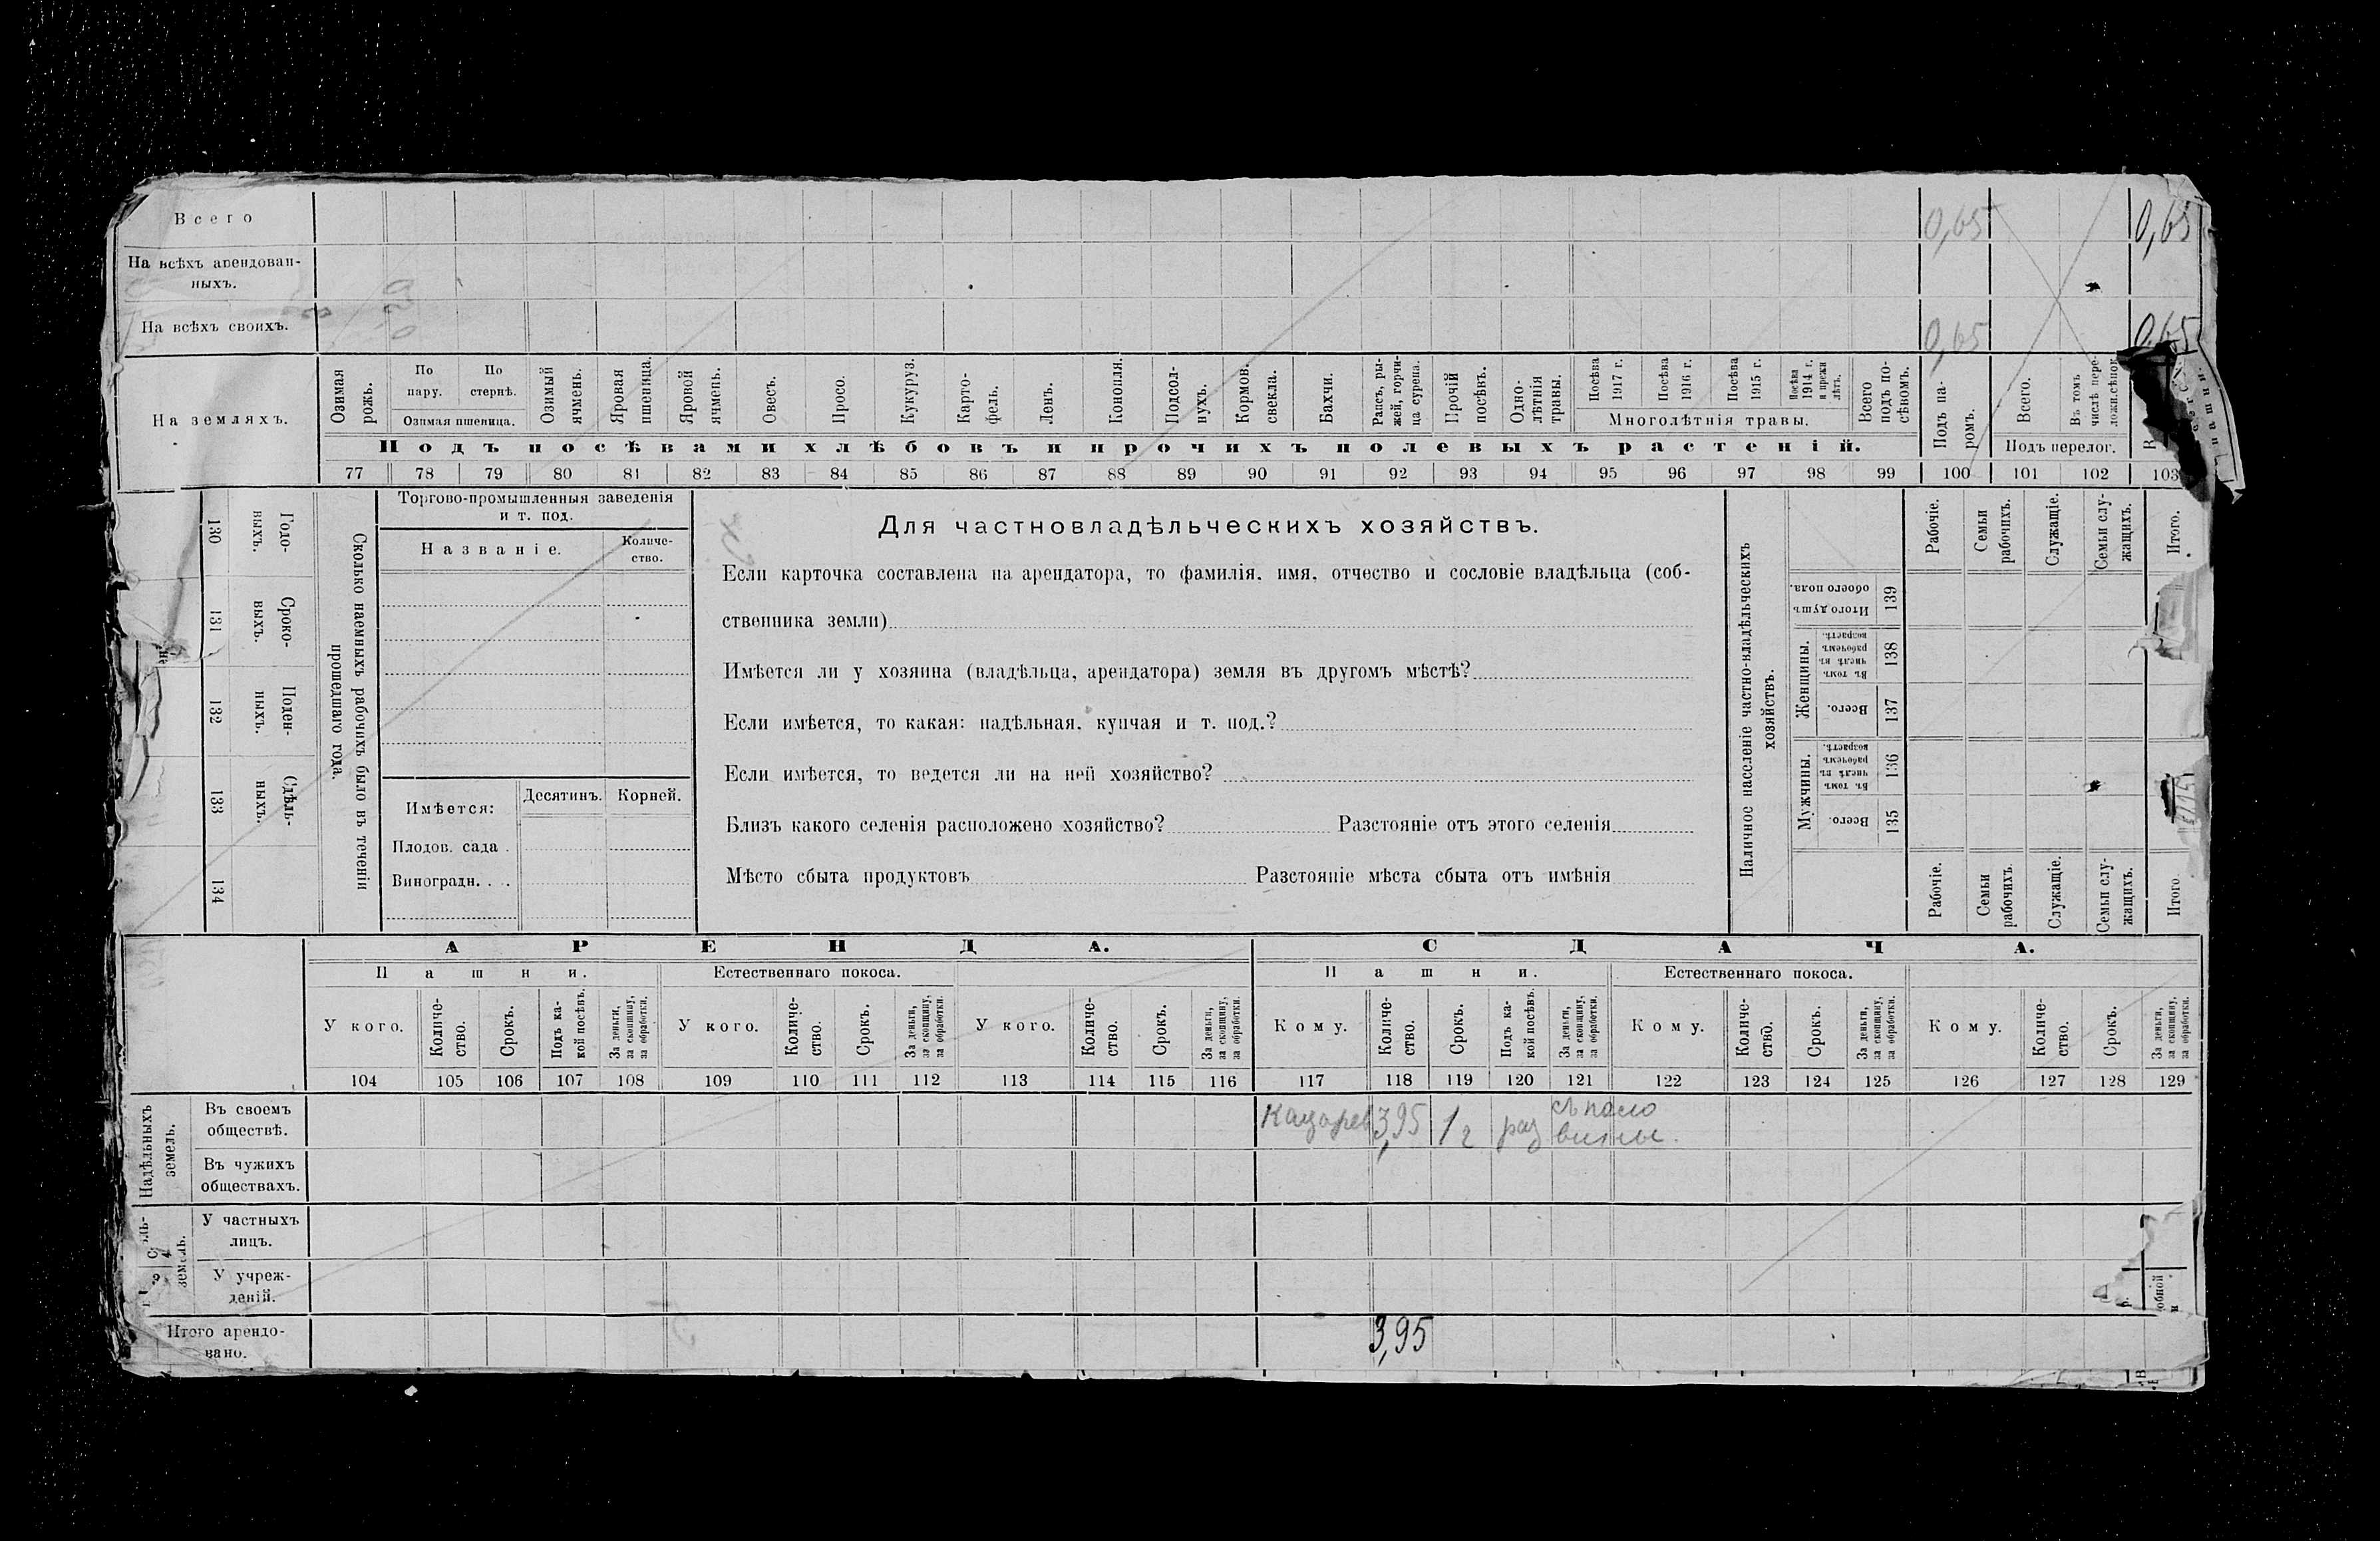 Всего 0,65 0,65
На всѣхъ арендован-
ныхъ.
На всѣхъ своихъ. 0,65 0,65
На земляхъ.
Озимая рожь.
По пару.
По стернѣ.
Озимая пшеница.
Озимый ячмень.
Яровая пшеница.
Яровой ячмень.
Овесъ.
Просо.
Кукуруз.
Карто-
фель.
Ленъ.
Конопля.
Подсол-
нухъ.
Кормов. свекла.
Бахчи.
Рапсъ, ры-
жей, горчи-
ца сурепа.
Прочій посѣвъ.
Одно-
лѣтнія травы.
Посѣва 1917 г.
Посѣва 1916 г.
Посѣва 1915 г.
Посѣва 1914 г. и прежн лѣтъ.
Многолѣтнія травы.
Всего подъ по-
сѣвомъ.
Подъ па-
ромъ.
Всего.
Въ томъ числѣ пере-
Подъ перелог.
Подъ посѣвами хлѣбовъ и прочихъ полевыхъ растеній.
77 78 79 80 81 82 83 84 85 86 87 88 89 90 91 92 93 94 95 96 97 98 99 100 101 102 103
130 Годо-
выхъ.
131 Сроко-
выхъ.
132 Поден-
ныхъ.
133 Сдѣль-
ныхъ.
134
Сколько наемныхъ рабочихъ было въ теченіи
прошедшаго года.
Торгово-промышленныя заведенія
и т. под.
Названіе.
Количе-
ство.
Имѣется: Десятинъ. Корней.
Плодов. сада .
Виноградн. . .
Для частновладѣльческихъ хозяйствъ.
Если карточка составлена на арендатора, то фамилія, имя, отчество и сословіе владѣльца (соб-
ственника земли)
Имѣется ли у хозяина (владѣльца, арендатора) земля въ другомъ мѣстѣ?
Если имѣется, то какая: надѣльная, купчая и т. под.?
Если имѣется, то ведется ли на ней хозяйство?
Близъ какого селенія расположено хозяйство? Разстояніе отъ этого селенія
Мѣсто сбыта продуктовъ Разстояніе мѣста сбыта отъ имѣнія
Наличное населеніе частно-владѣльческихъ
хозяйствъ.
Рабочіе.
Семьи рабочихъ.
Служащіе.
Семьи слу-
жащихъ.
Итого.
Итого душъ обоего пола. 139
Женщины.
Въ томъ числѣ въ рабочемъ возрастѣ. 138
Всего. 137
Мужчины.
Въ томъ числѣ въ рабочемъ возрастѣ. 136
Всего. 135
Рабочіе.
Семьи рабочихъ.
Служащіе.
Семьи слу-
жащихъ.
Итого
АРЕНДА. СДАЧА.
Пашни. Естественнаго покоса. Пашни. Естественнаго покоса.
У кого.
Количе-
ство.
Срокъ.
Подъ ка-
кой посѣвъ.
За деньги, за скопщину, за обработки.
У кого.
Количе-
ство.
Срокъ.
За деньги, за скопщину, за обработки.
У кого.
Количе-
ство.
Срокъ.
За деньги, за скопщину, за обработки.
Кому.
Количе-
ство.
Срокъ.
Подъ ка-
кой посѣвъ.
За деньги, за скопщину, за обработки.
Кому.
Количе-
ство.
Срокъ.
За деньги, за скопщину, за обработки.
Кому.
Количе-
ство.
Срокъ.
За деньги, за скопщину, за обработки.
104 105 106 107 108 109 110 111 112 113 114 115 116 117 118 119 120 121 122 123 124 125 126 127 128 129
Надѣльныхъ
земель.
Въ своемъ
обществѣ.
3,95 1 г раз съ поло
вины.
Въ чужихъ
обществахъ.
У частныхъ
лицъ.
У учреж-
деній.
Итого арендо-
вано.
3,95